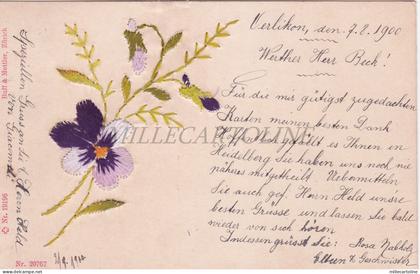 Oerlikon, den 7.2. 1900
Werther Herr Beck!
Für die mir gütigst zugedachten
Karten meinen besten Dank
Hoffentlich gefällt es Ihnen in
Heidelberg Sie haben uns noch nie
näheres mitgetheilt. Uebermitteln
Sie auch gef. Herrn Held unsre
besten Grüsse und lassen Sie bald
wieder von sich hören
Indessen grüsst Sie: Rosa Nabholz
Eltern & Geschwister
Speziellen Gruss an Sie & Herrn Held
von
Nr. 19196
Nr. 20767
MILLECARTOLINE